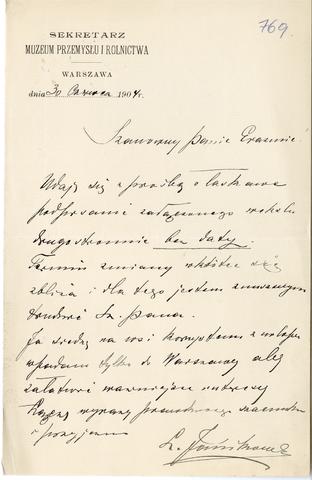 769.
SEKRETARZ
MUZEUM PRZEMYSŁU I ROLNICTWA
WARSZAWA
dnia 30 Czerwca 1904 r.
Szanowny Panie Erazmie.
Udaję się z prośbą o łaskawe
podpisanie załączonego wekslu
drugostronnie bez daty.
Termin zmiany wkrótce się
zbliża i dla tego jestem zmuszonym
trudzić Sz. Pana.
Ja siedzę na wsi i korzystam z urlopu
wpadam tylko do Warszawy aby
załatwić ważniejsze interesy
Łączę wyrazy prawdziwego szacunku
i przyjaźni